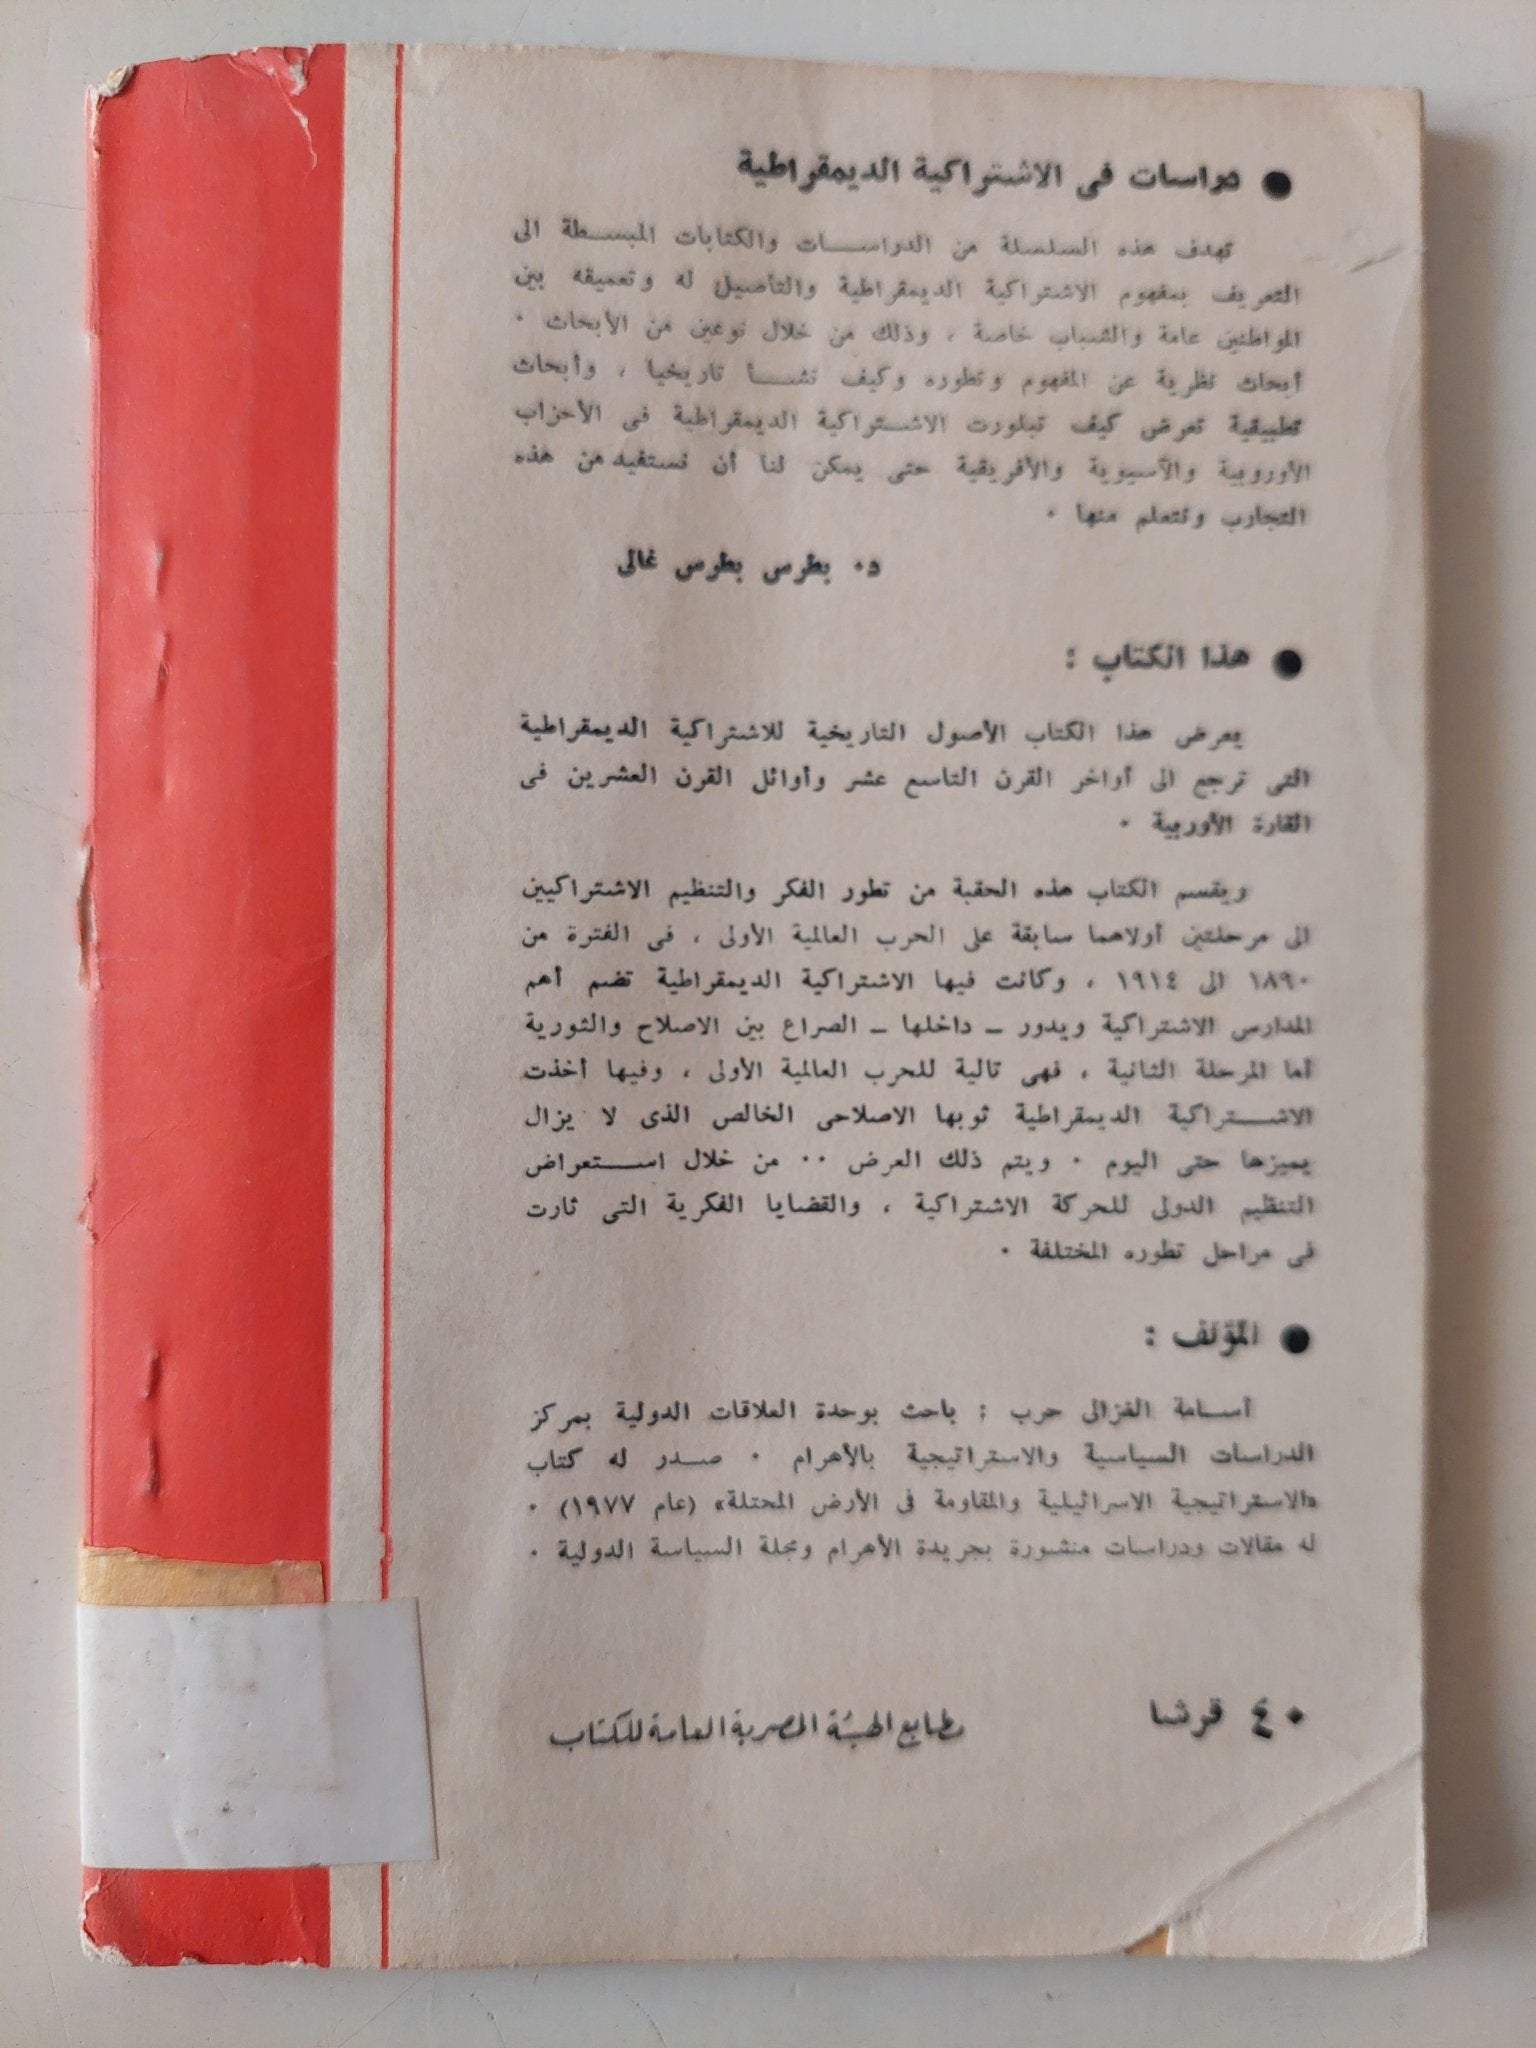 ● دراسات فى الاشتراكية الديمقراطية
تهدف هذه السلسلة من الدراسات والكتابات المبسطة الى
التعريف بمفهوم الاشتراكية الديمقراطية والتأصيل له وتعميقه بين
المواطنين عامة والشباب خاصة ، وذلك من خلال نوعين من الأبحاث ٠
أبحاث نظرية عن المفهوم وتطوره وكيف نشأ تاريخيا ، وأبحاث
تطبيقية تعرض كيف تبلورت الاشتراكية الديمقراطية فى الأحزاب
الأوروبية والآسيوية والأفريقية حتى يمكن لنا أن نستفيد من هذه
التجارب ونتعلم منها ٠
د٠ بطرس بطرس غالى
● هذا الكتاب :
يعرض هذا الكتاب الأصول التاريخية للاشتراكية الديمقراطية
التى ترجع الى أواخر القرن التاسع عشر وأوائل القرن العشرين فى
القارة الأوربية ٠
ويقسم الكتاب هذه الحقبة من تطور الفكر والتنظيم الاشتراكيين
الى مرحلتين أولاهما سابقة على الحرب العالمية الأولى ، فى الفترة من
١٨٩٠ الى ١٩١٤ ، وكانت فيها الاشتراكية الديمقراطية تضم أهم
المدارس الاشتراكية ويدور ــ داخلها ــ الصراع بين الاصلاح والثورية
أما المرحلة الثانية ، فهى تالية للحرب العالمية الأولى ، وفيها أخذت
الاشتراكية الديمقراطية ثوبها الاصلاحى الخالص الذى لا يزال
يميزها حتى اليوم ٠ ويتم ذلك العرض ٠٠ من خلال استعراض
التنظيم الدولى للحركة الاشتراكية ، والقضايا الفكرية التى ثارت
فى مراحل تطوره المختلفة ٠
● المؤلف :
أسامة الغزالى حرب : باحث بوحدة العلاقات الدولية بمركز
الدراسات السياسية والاستراتيجية بالأهرام ٠ صدر له كتاب
«الاستراتيجية الاسرائيلية والمقاومة فى الأرض المحتلة» (عام ١٩٧٧) ٠
له مقالات ودراسات منشورة بجريدة الأهرام ومجلة السياسة الدولية ٠
٤٠ قرشا
مطابع الهيئة المصرية العامة للكتاب